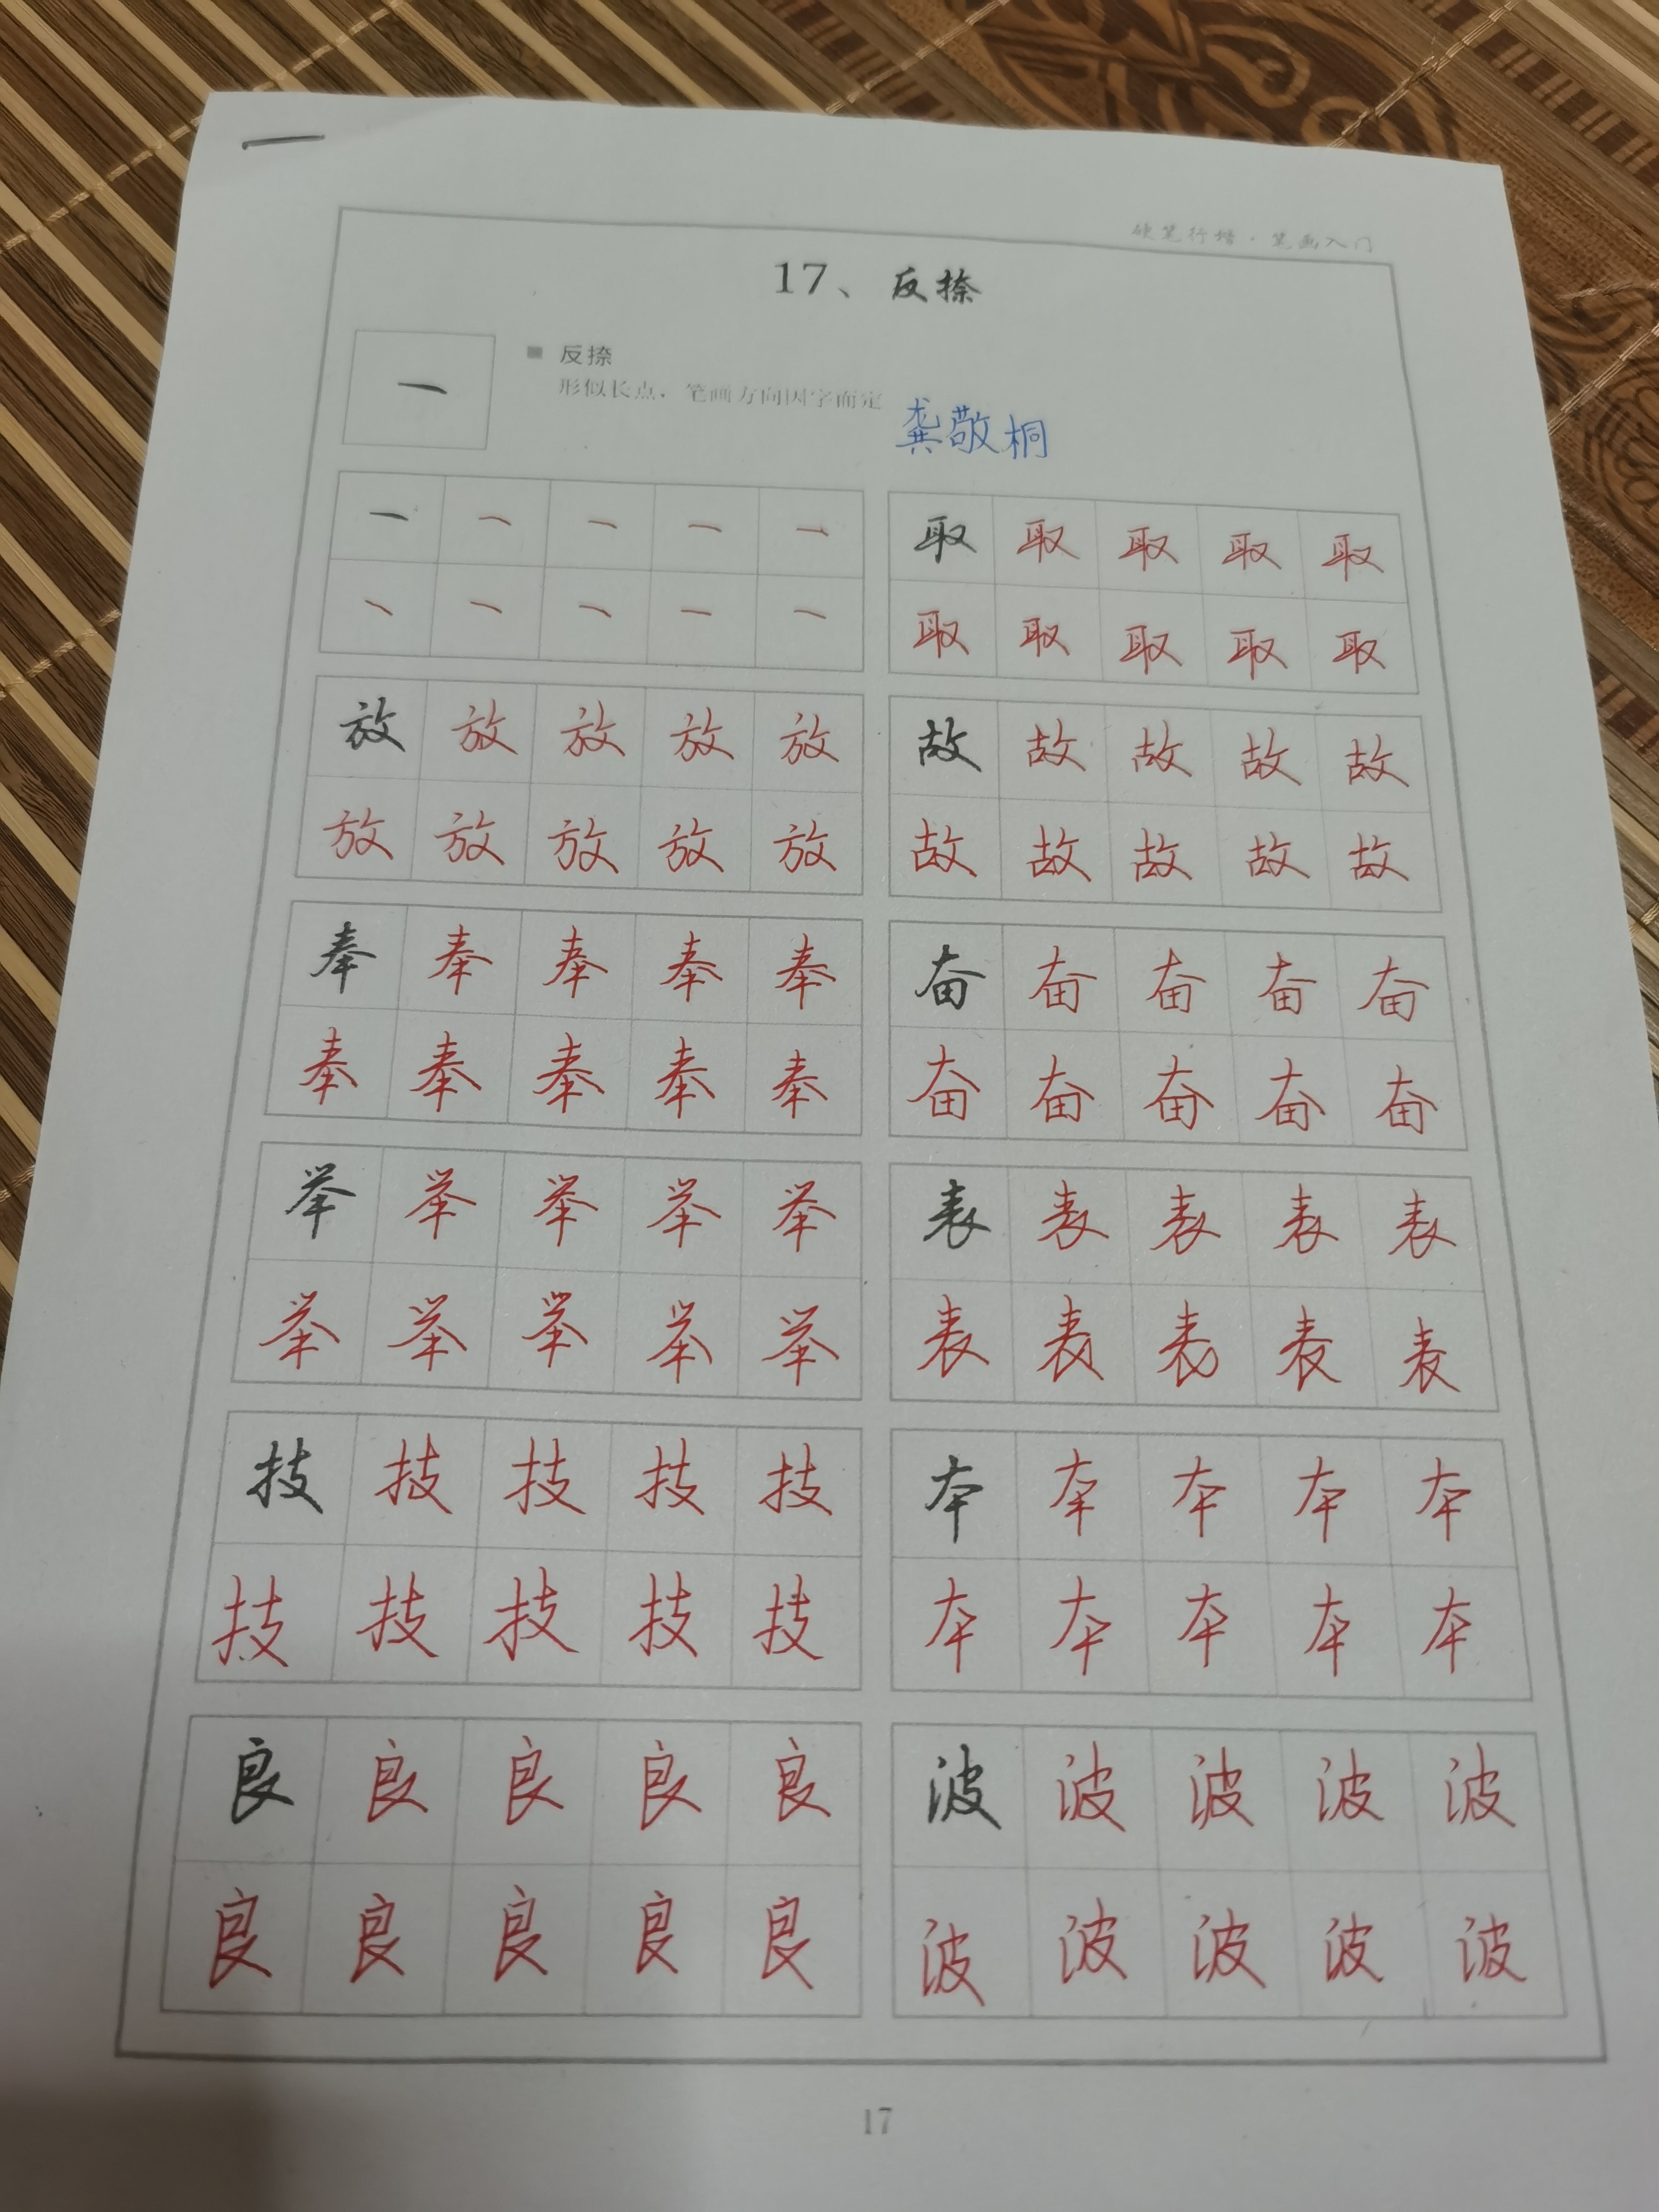 硬笔行楷·笔画入门
17、反捺
■ 反捺
形似长点，笔画方向因字而定
龚敬桐
取 取 取 取 取
取 取 取 取 取
放 放 放 放 放
放 放 放 放 放
故 故 故 故 故
故 故 故 故 故
奉 奉 奉 奉 奉
奉 奉 奉 奉 奉
奋 奋 奋 奋 奋
奋 奋 奋 奋 奋
举 举 举 举 举
举 举 举 举 举
表 表 表 表 表
表 表 表 表 表
技 技 技 技 技
技 技 技 技 技
本 本 本 本 本
本 本 本 本 本
良 良 良 良 良
良 良 良 良 良
波 波 波 波 波
波 波 波 波 波
17